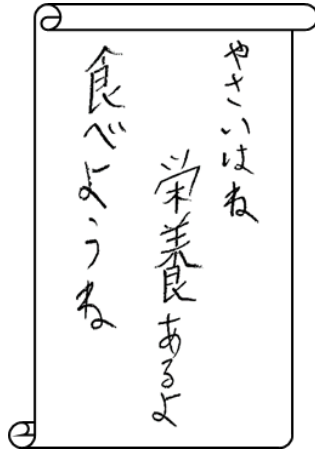 やさいはね
栄養あるよ
食べようね